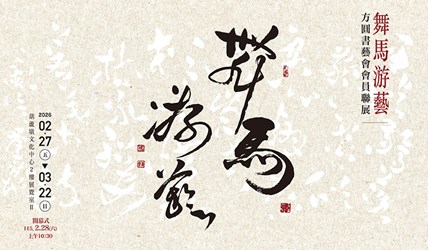 舞馬游藝
方圓書藝會會員聯展
舞馬
游藝
2026
02.27 五
▼
03.22 日
葫蘆墩文化中心2樓展覽室Ⅱ
開幕式
115.2.28(六)
上午10:30